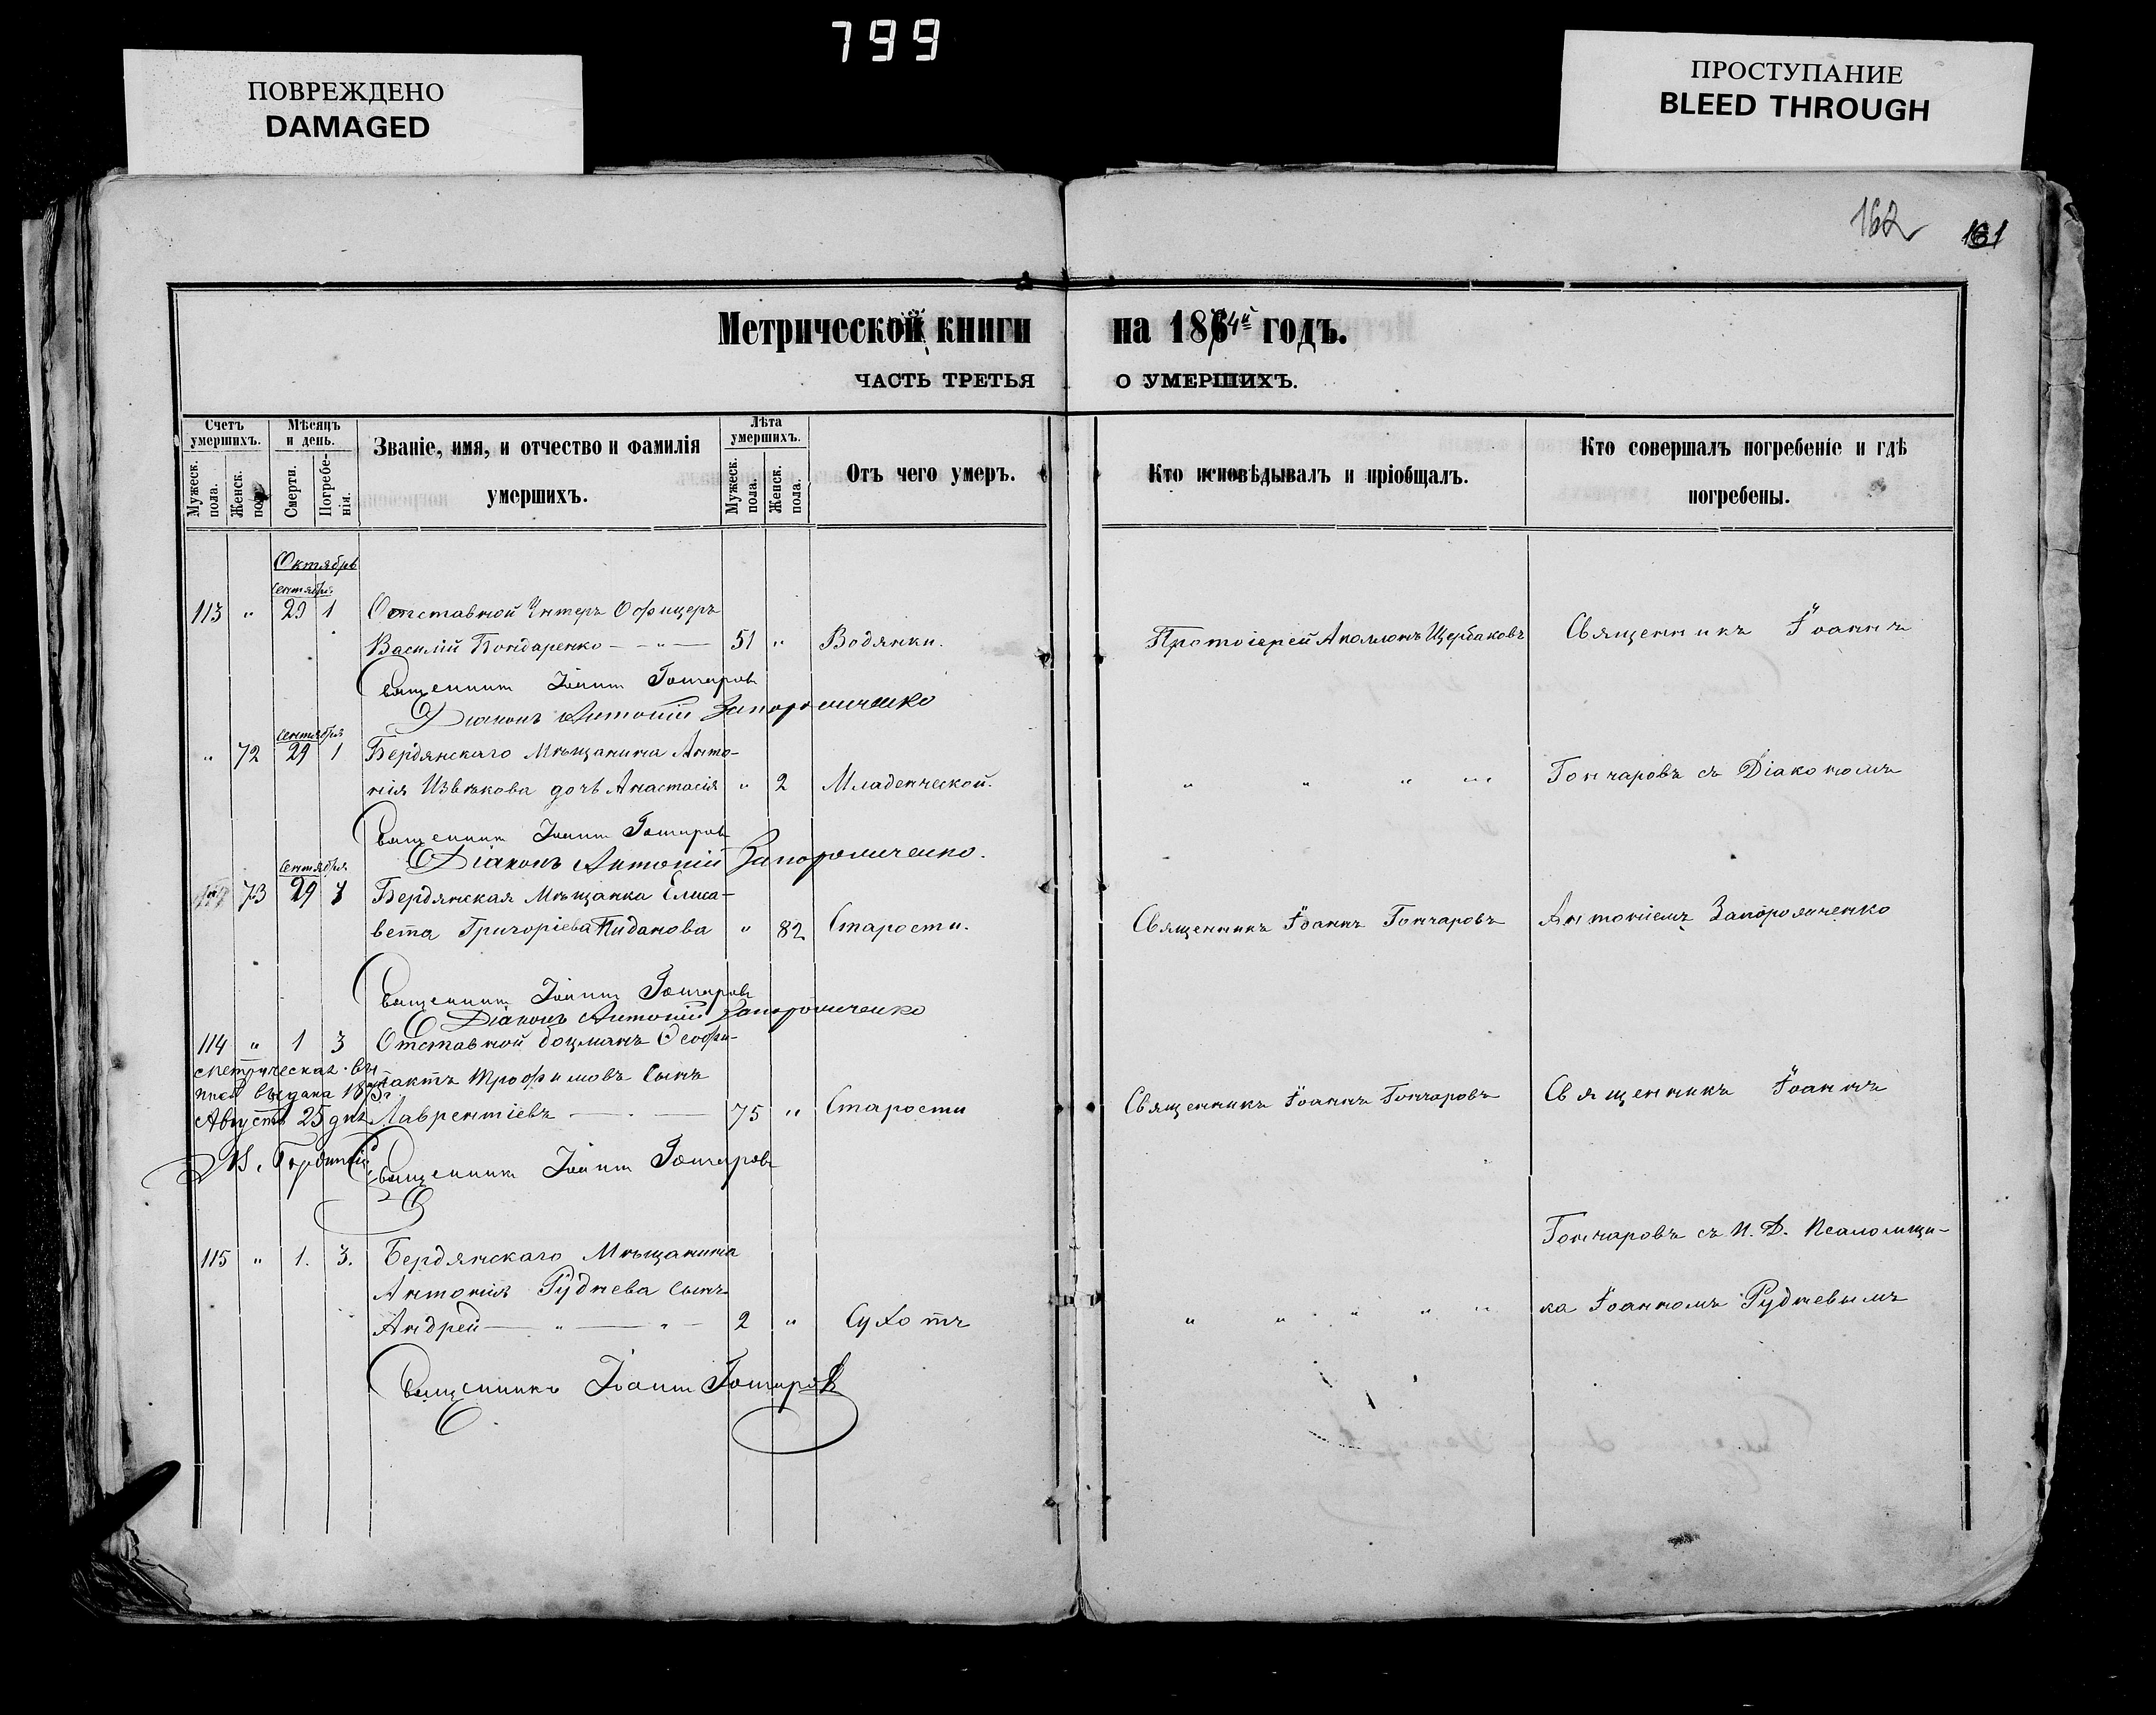 799
ПОВРЕЖДЕНО
DAMAGED
ПРОСТУПАНИЕ
BLEED THROUGH
162
161
Метрической книги на 1874й годъ.
ЧАСТЬ ТРЕТЬЯ О УМЕРШИХЪ.
Счетъ умершихъ.
Мужеск. пола.
Женск. пола.
Мѣсяцъ и день.
Смерти.
Погребенія.
Званіе, имя, и отчество и фамилія умершихъ.
Лѣта умершихъ.
Мужеск. пола.
Женск. пола.
Отъ чего умеръ.
Кто исповѣдывалъ и пріобщалъ.
Кто совершалъ погребеніе и гдѣ погребены.
Октябрь
Сентября
113 " 29 1 Отставной Унтеръ Офицеръ
Василій Бондаренко — " — 51 " Водянки. Протоіерей Аполлонъ Щербаковъ Священникъ Іоаннъ
Священникъ Іоаннъ Гончаровъ
Діаконъ Антоній Запорожченко
Сентября
" 72 29 1 Бердянскаго Мѣщанина Анто-
нія Извѣкова дочь Анастасія " 2 Младенческой. " " " " Гончаровъ съ Діакономъ
Священникъ Іоаннъ Гончаровъ
Діаконъ Антоній Запорожченко.
Сентября
73 29 1 Бердянская Мѣщанка Елиса-
вета Григоріева Пиданова " 82 Старости. Священникъ Іоаннъ Гончаровъ Антоніемъ Запорожченко
Священникъ Іоаннъ Гончаровъ
Діаконъ Антоній Запорожченко
114 " 1 3 Отставной боцманъ Ѳеофи-
лактъ Трофимовъ сынъ
Лаврентіевъ — 75 " Старости Священникъ Іоаннъ Гончаровъ Священникъ Іоаннъ
Метрическая вы
пись выдана 1875г.
Августа 25 дня
Священникъ Іоаннъ Гончаровъ
Гончаровъ съ И. Д. Псаломщи-
115 " 1. 3. Бердянскаго Мѣщанина
Антонія Руднева сынъ
Андрей — " — " — 2 " Сухотъ " " " " " ка Іоанномъ Рудневымъ
Священникъ Іоаннъ Гончаровъ